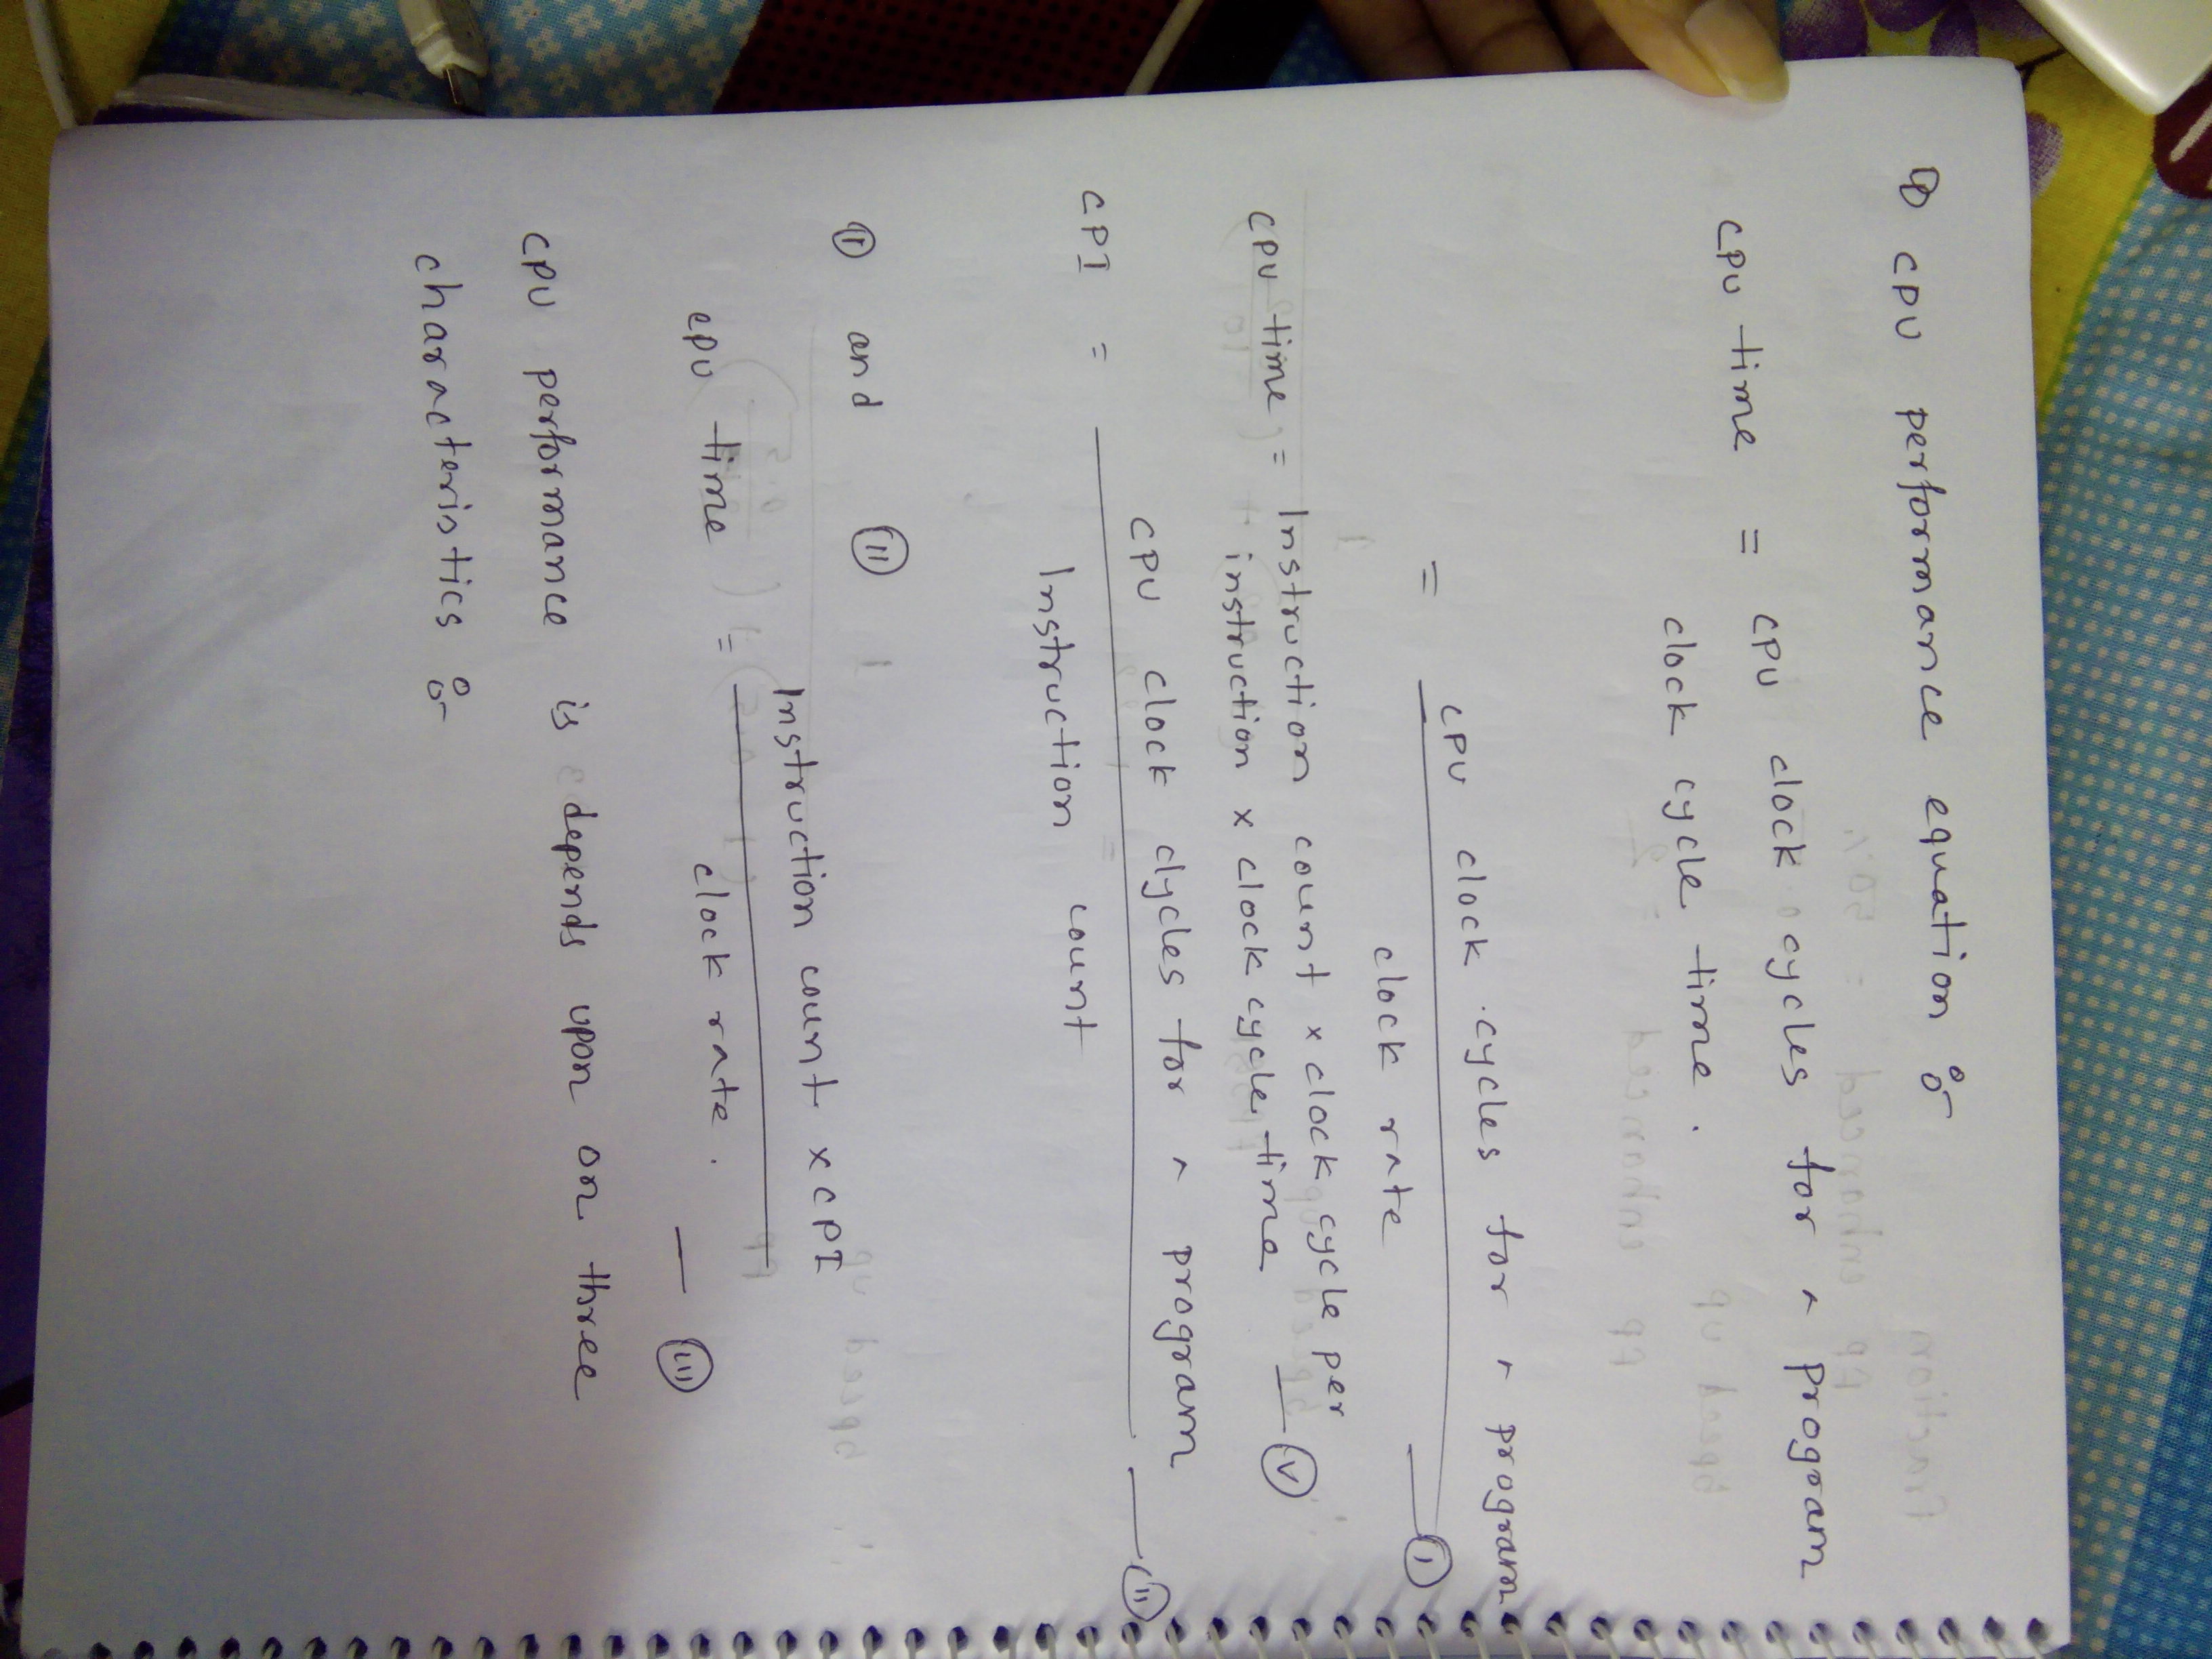 ① CPU performance equation :-
CPU time = CPU clock cycles for a program
clock cycle time .
= CPU clock cycles for a program
clock rate — ①
CPU time = Instruction count x clock cycle per
instruction x clock cycle time — Ⓥ
CPU clock clycles for a program — ⑪
CPI =
Instruction count
⑪ and ⑪
Instruction count x CPI
cpu time =
clock rate . — (III)
CPU performance is depends upon on three
characteristics :-